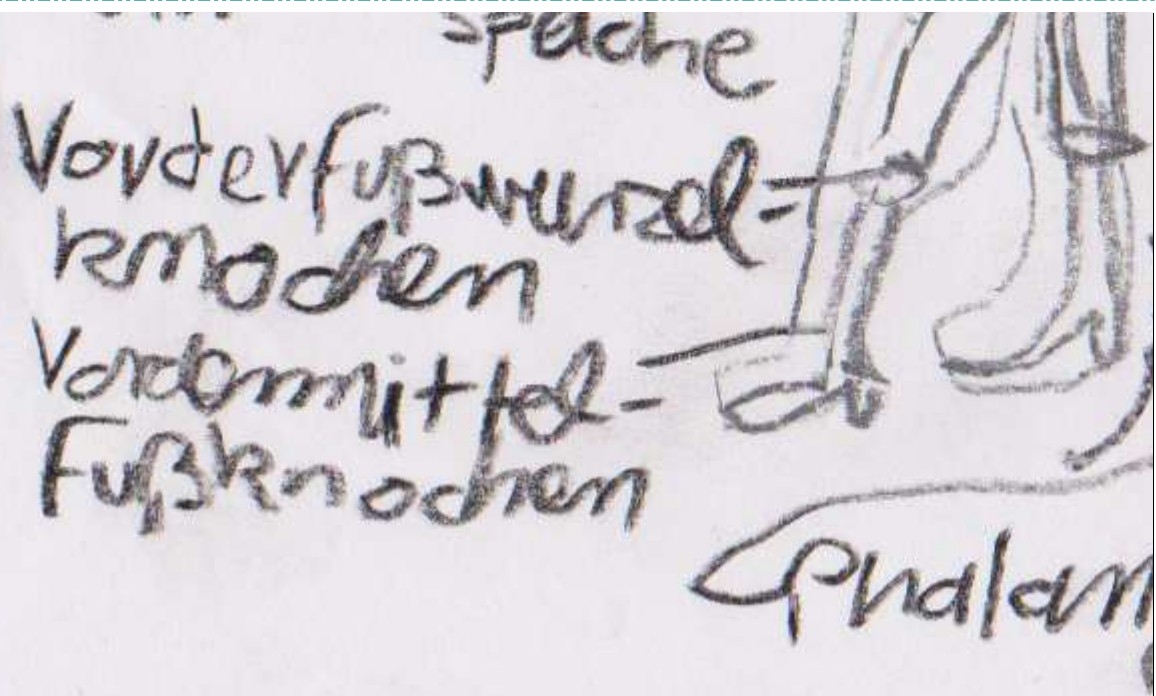 Speiche
Vorderfußwurzel-
knochen
Vordermittel-
Fußknochen
Phalan